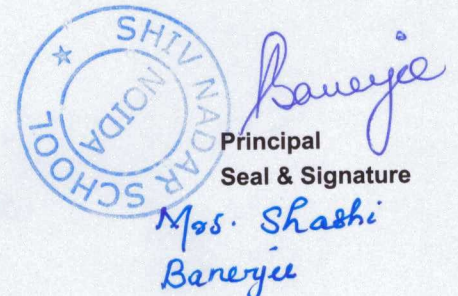 SHIV NADAR SCHOOL
NOIDA
Banerjee
Principal
Seal & Signature
Mrs. Shashi
Banerjee